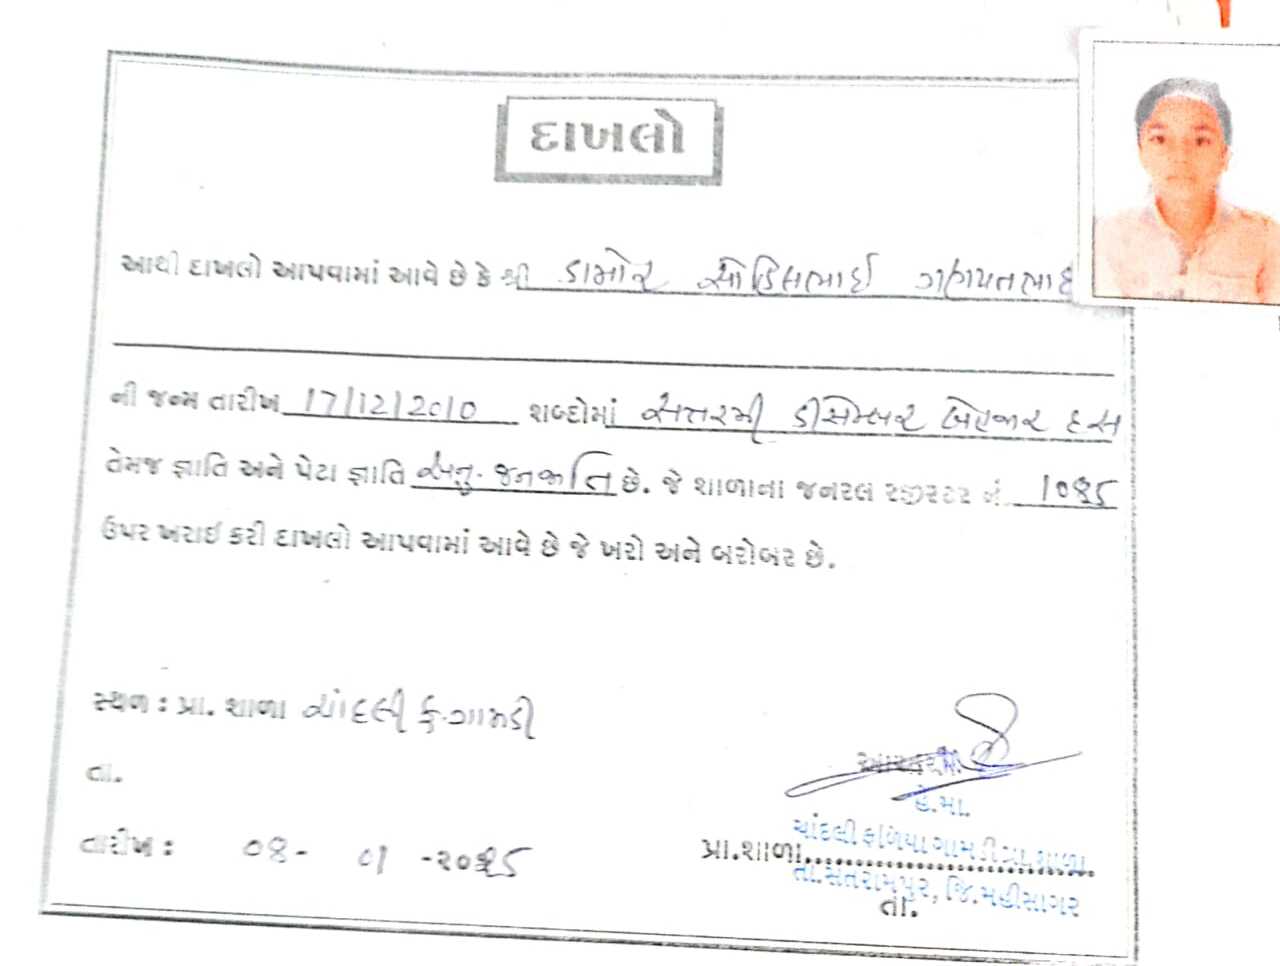 દાખલો
આથી દાખલો આપવામાં આવે છે કે શ્રી ડામોર ગણપતભાઈ
ની જન્મ તારીખ 17/12/2010 શબ્દોમાં સત્તરમી ડીસેમ્બર બેહજાર દસ
તેમજ જ્ઞાતિ અને પેટા જ્ઞાતિ અનુ. જનજાતિ છે. જે શાળાના જનરલ રજીસ્ટર નં. ૧૦૪૬
ઉપર ખરાઈ કરી દાખલો આપવામાં આવે છે જે ખરો અને બરોબર છે.
સ્થળ : પ્રા. શાળા ચાંદલી ફ.ગામડી
તા.
હે.મા.
ચાંદલી ફળિયા ગામડી પ્રા.શાળા
તારીખ : ૦૪- ૦૧ -૨૦૨૬
પ્રા.શાળા
તા.સંતરામપુર, જિ.મહીસાગર
તા.